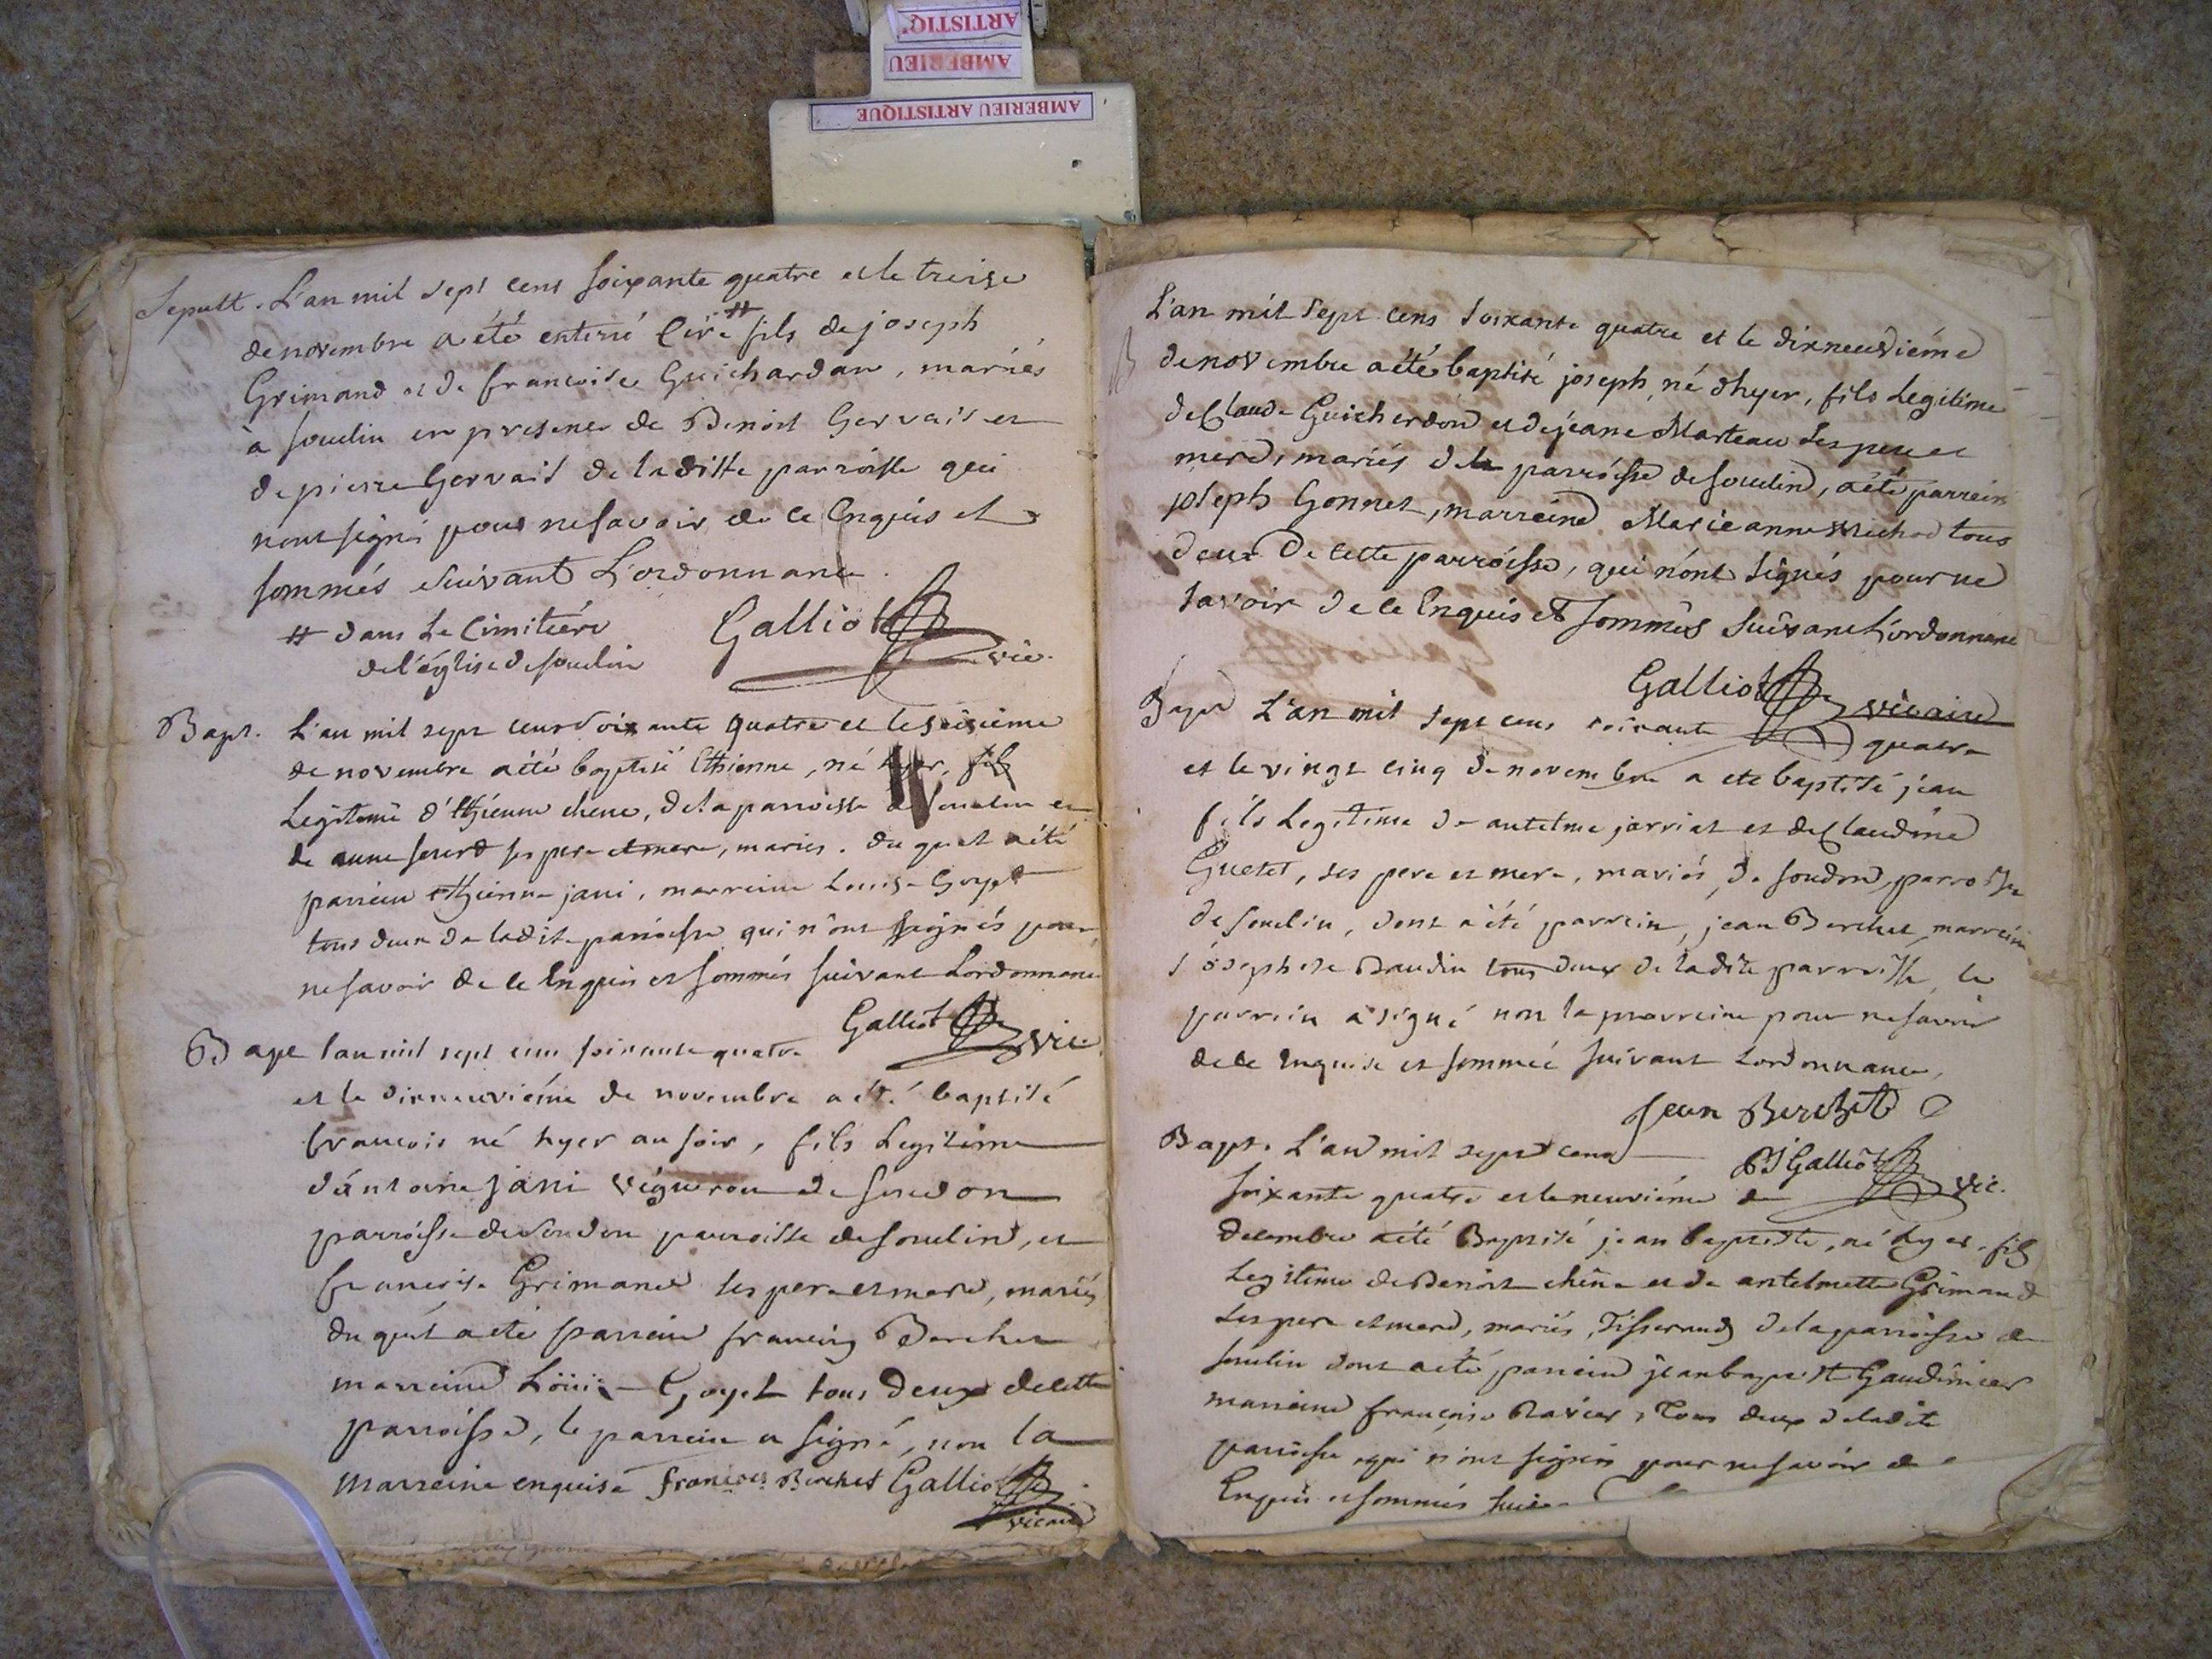 ARTISTIQ
AMBERIEU
AMBERIEU ARTISTIQUE
Sepult. L'an mil sept cens soixante quatre et le treise
de novembre a été enterré # fils de joseph
Grimand et de francoise Guichardan, mariés
à soudin en presence de Benoit Gervais et
de pierre Gervais de laditte parroisse qui
nont signé pour ne savoir de ce Enquis et
sommés suivant L'ordonnance.
# dans Le Cimitiére
de l'église de soudin
Galliot
vic.
Bapt. L'an mil sept cens soixante quatre et le seisiéme
de novembre a été baptisé Ethienne, né hyer, fils
Legitime d'Ethienne chene, de la parroisse de soudin et
de anne ses pere et mere, mariés. du quel a été
parrein Ethienne jani, marreine Louise Goyet
tous deux de ladite parroisse qui n'ont signés pour
ne savoir de ce Enquis et sommés suivant Lordonnance
Galliot vic.
Bapt lan mil sept cens soixante quatre
et le dixneuviéme de novembre a été baptisé
francois né hyer au soir, fils Legitime
d'antoine jani vigneron de soudon
parroisse de soudon parroisse de soudin, et
francoise Grimand ses pere et mere, mariés
du quel a été parrein francois Berchet
marreine Löuise Goyet tous deux de cette
parroisse, le parrein a signé, non la
marreine enquise francois Berchet Galliot
vicaire
L'an mil sept cens soixante quatre et le dixneuviéme
B de novembre a été baptisé joseph, né d'hyer, fils Legitime
de Claude Guicherdon et de jeane Marteau ses pere et
mere, mariés de la parroisse de soudin, a été parrein
joseph Gonnet, marreine Marie anne Michod tous
deux De cette parroisse, qui n'ont signés pour ne
savoir de ce Enquis et sommés suivant L'ordonnance
Galliot vicaire
Bapt L'an mil sept cens soixante quatre
et le vingt cinq de novembre a eté baptisé jean
fils Legitime de antelme jarriat et de Claudine
Guetet, ses pere et mere, mariés, de soudon, parroisse
de soudin, dont a été parrein, jean Berchet, marreine
josephete Baudin tous deux de ladite parroisse, le
parrein a signé non la marreine pour ne savoir
de ce enquise et sommeé suivant Lordonnance,
Jean Berchet
Bapt. L'an mil sept cens
PJ Galliot vic.
soixante quatre et le neuviéme de
decembre a été Baptisé jean baptiste, né hyer, fils
Legitime de Benoit chêne et de antelmette Grimand
ses pere et mere, mariés, Tisserands de la parroisse de
soudin dont a été parrein jean baptiste Gaudinier
marreine françoise Ravier, Tous deux de ladite
parroisse, qui n'ont signés pour ne savoir de ce
Enquis et sommés